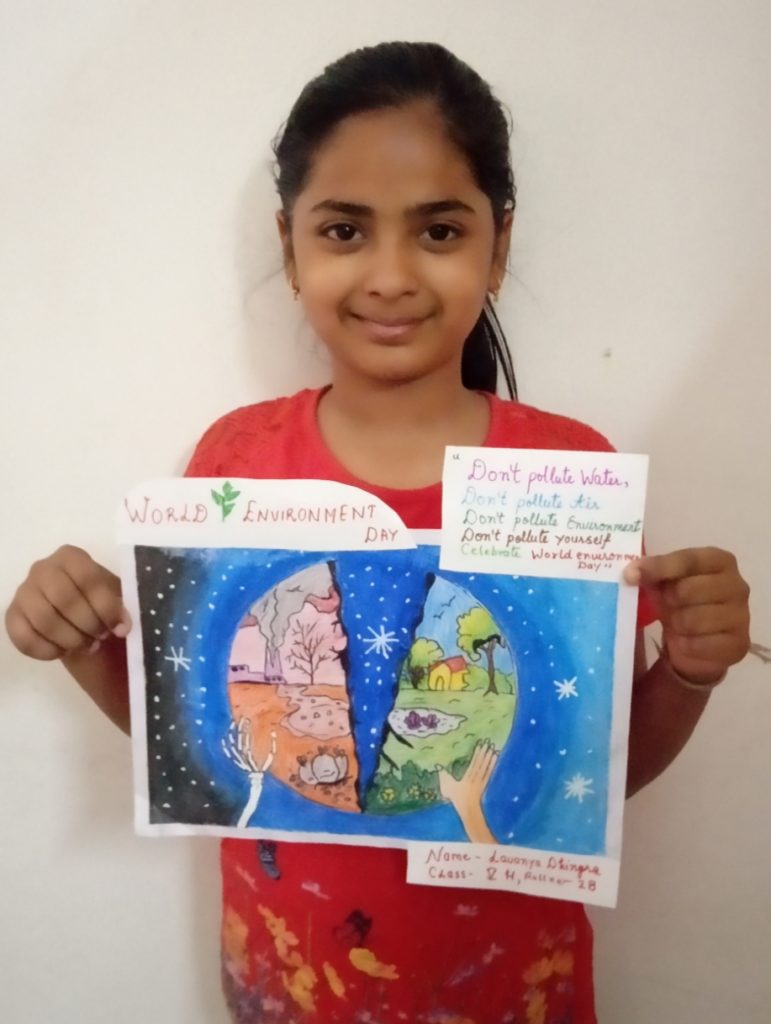 WORLD ENVIRONMENT
DAY
"Don't pollute Water,
Don't pollute Air
Don't pollute Environment
Don't pollute yourself
Celebrate World environmen
Day"
Name - Lavanya Dhingra
Class - V H, Roll no 28